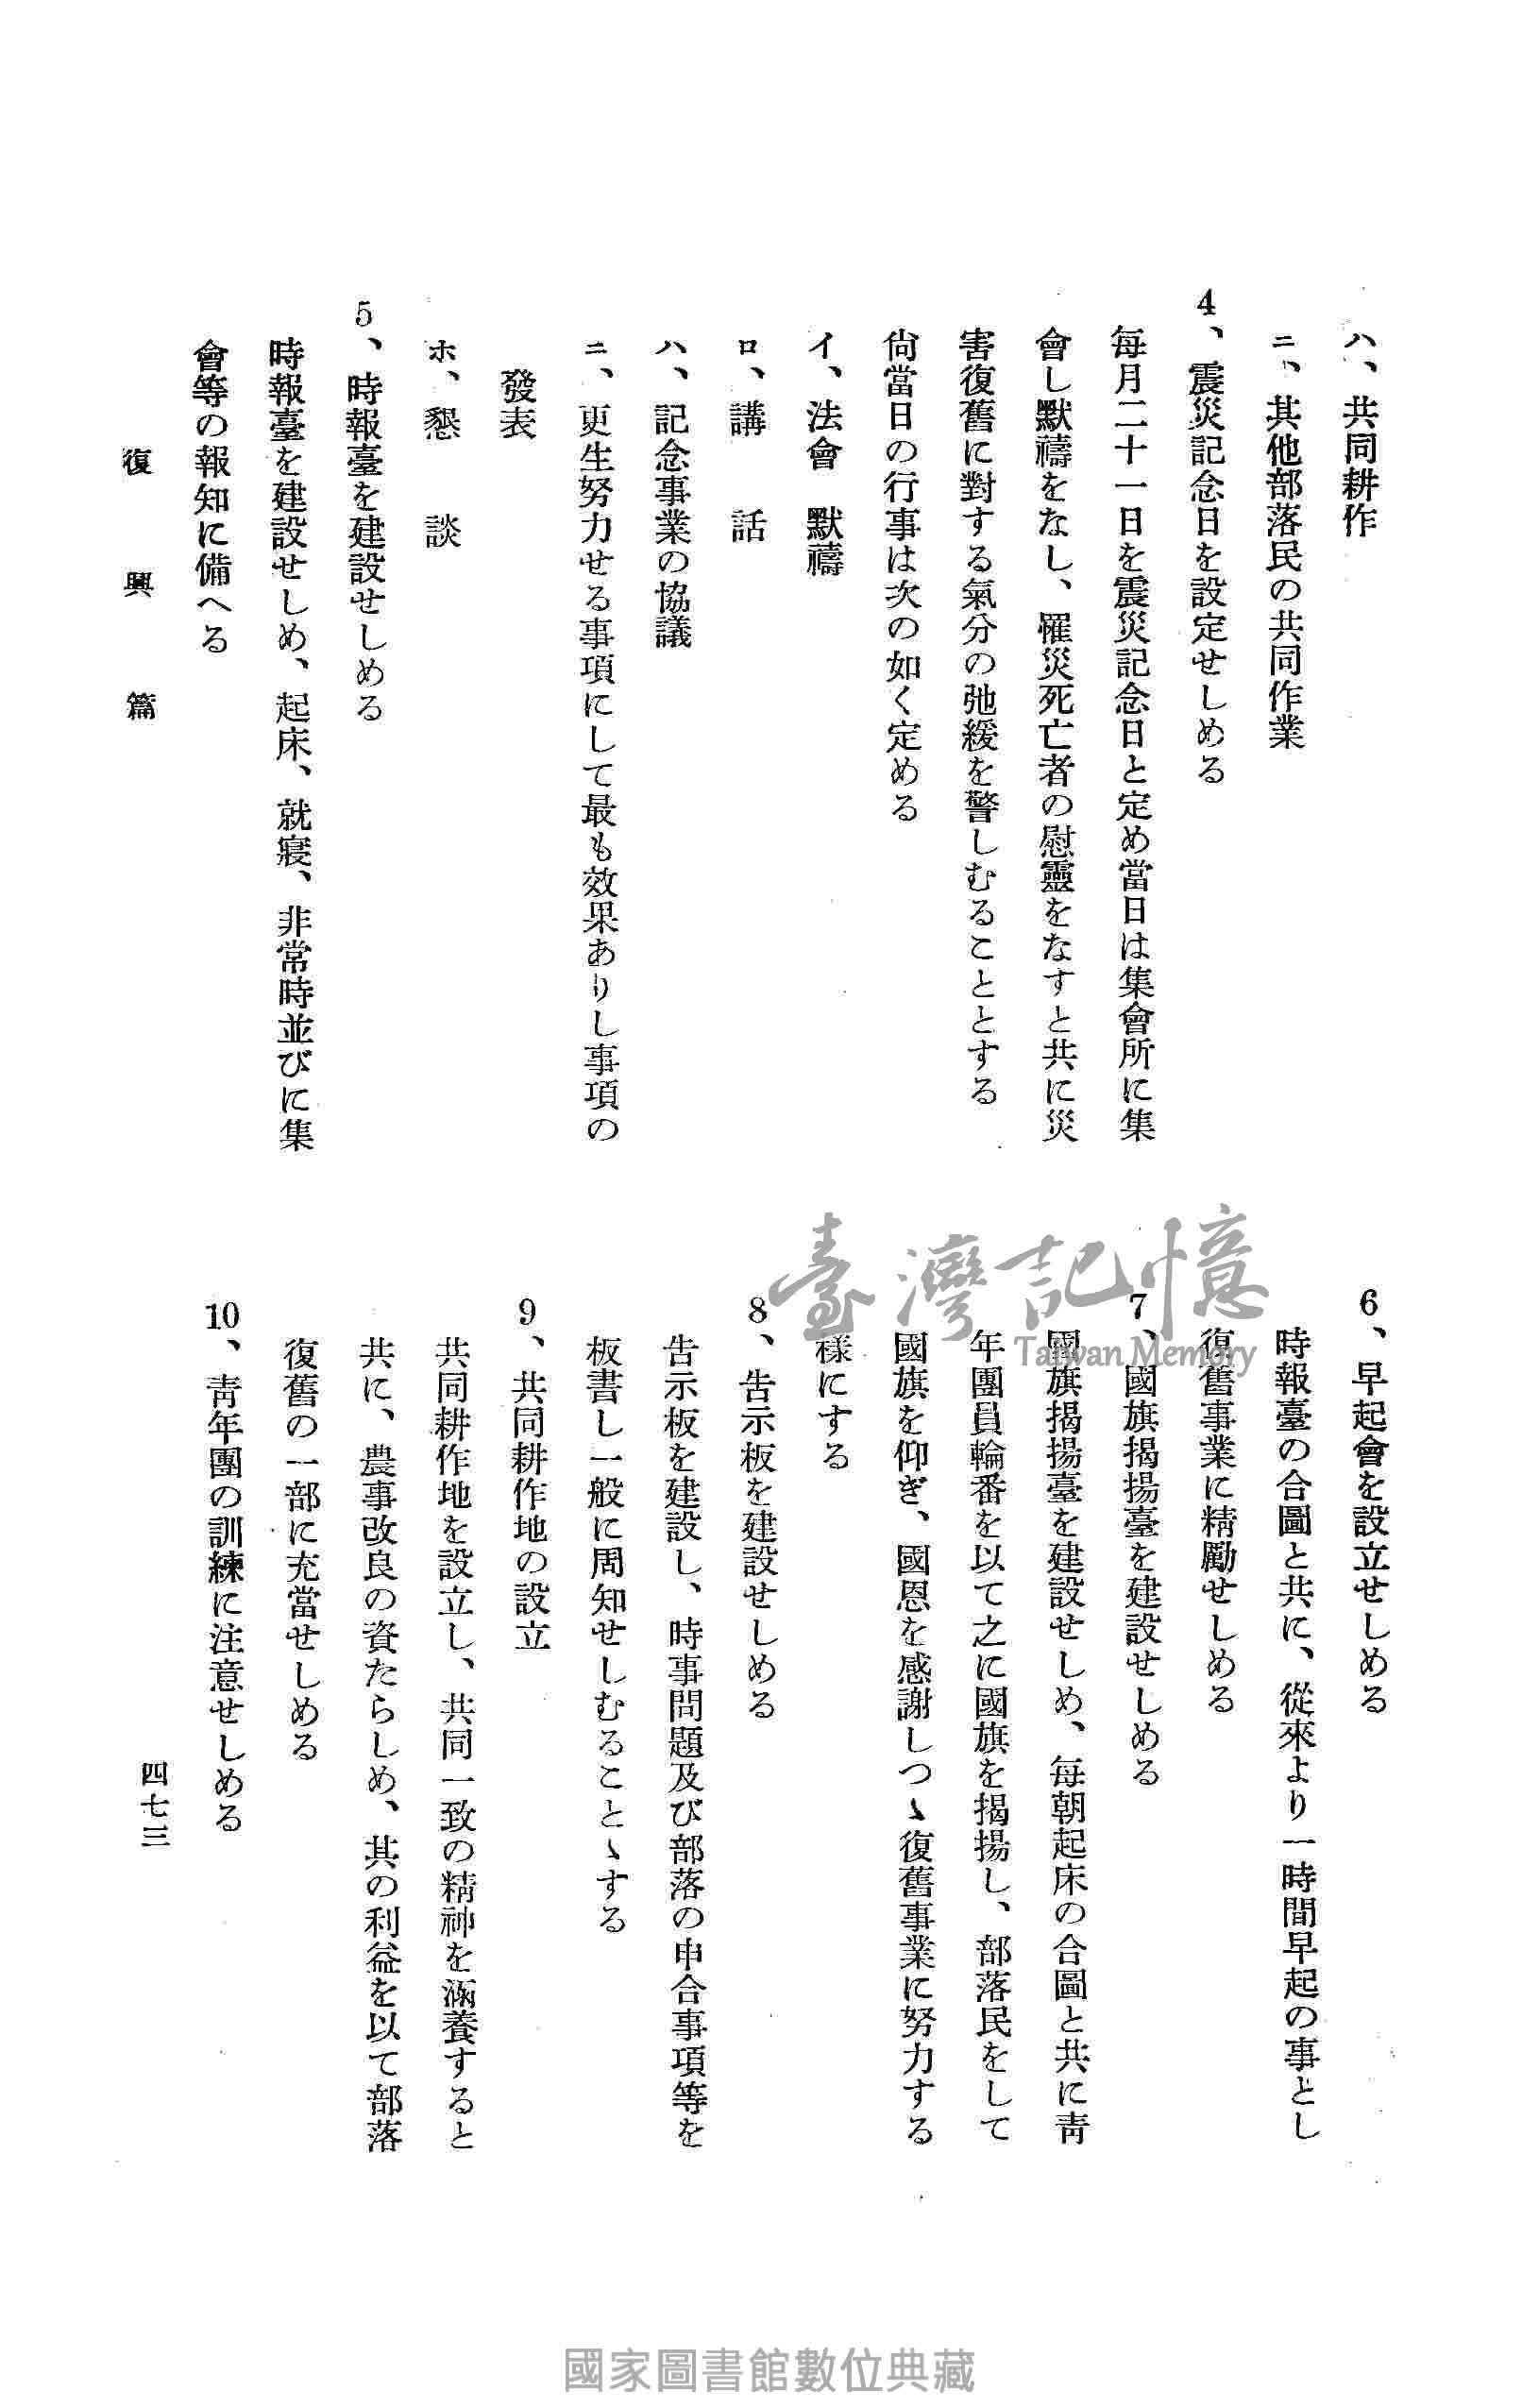 ハ、共同耕作
ニ、其他部落民の共同作業
4、震災記念日を設定せしめる
每月二十一日を震災記念日と定め當日は集會所に集
會し默禱をなし、罹災死亡者の慰靈をなすと共に災
害復舊に對する氣分の弛緩を警しむることとする
尙當日の行事は次の如く定める
イ、法會 默禱
ロ、講話
ハ、記念事業の協議
ニ、更生努力せる事項にして最も效果ありし事項の
發表
ホ、懇談
5、時報臺を建設せしめる
時報臺を建設せしめ、起床、就寢、非常時並びに集
會等の報知に備へる
6、早起會を設立せしめる
時報臺の合圖と共に、從來より一時間早起の事とし
復舊事業に精勵せしめる
7、國旗揭揚臺を建設せしめる
國旗揭揚臺を建設せしめ、每朝起床の合圖と共に靑
年團員輪番を以て之に國旗を揭揚し、部落民をして
國旗を仰ぎ、國恩を感謝しつゝ復舊事業に努力する
樣にする
8、告示板を建設せしめる
告示板を建設し、時事問題及び部落の申合事項等を
板書し一般に周知せしむることゝする
9、共同耕作地の設立
共同耕作地を設立し、共同一致の精神を涵養すると
共に、農事改良の資たらしめ、其の利益を以て部落
復舊の一部に充當せしめる
10、靑年團の訓練に注意せしめる
復興篇
四七三
臺灣記憶
Taiwan Memory
國家圖書館數位典藏